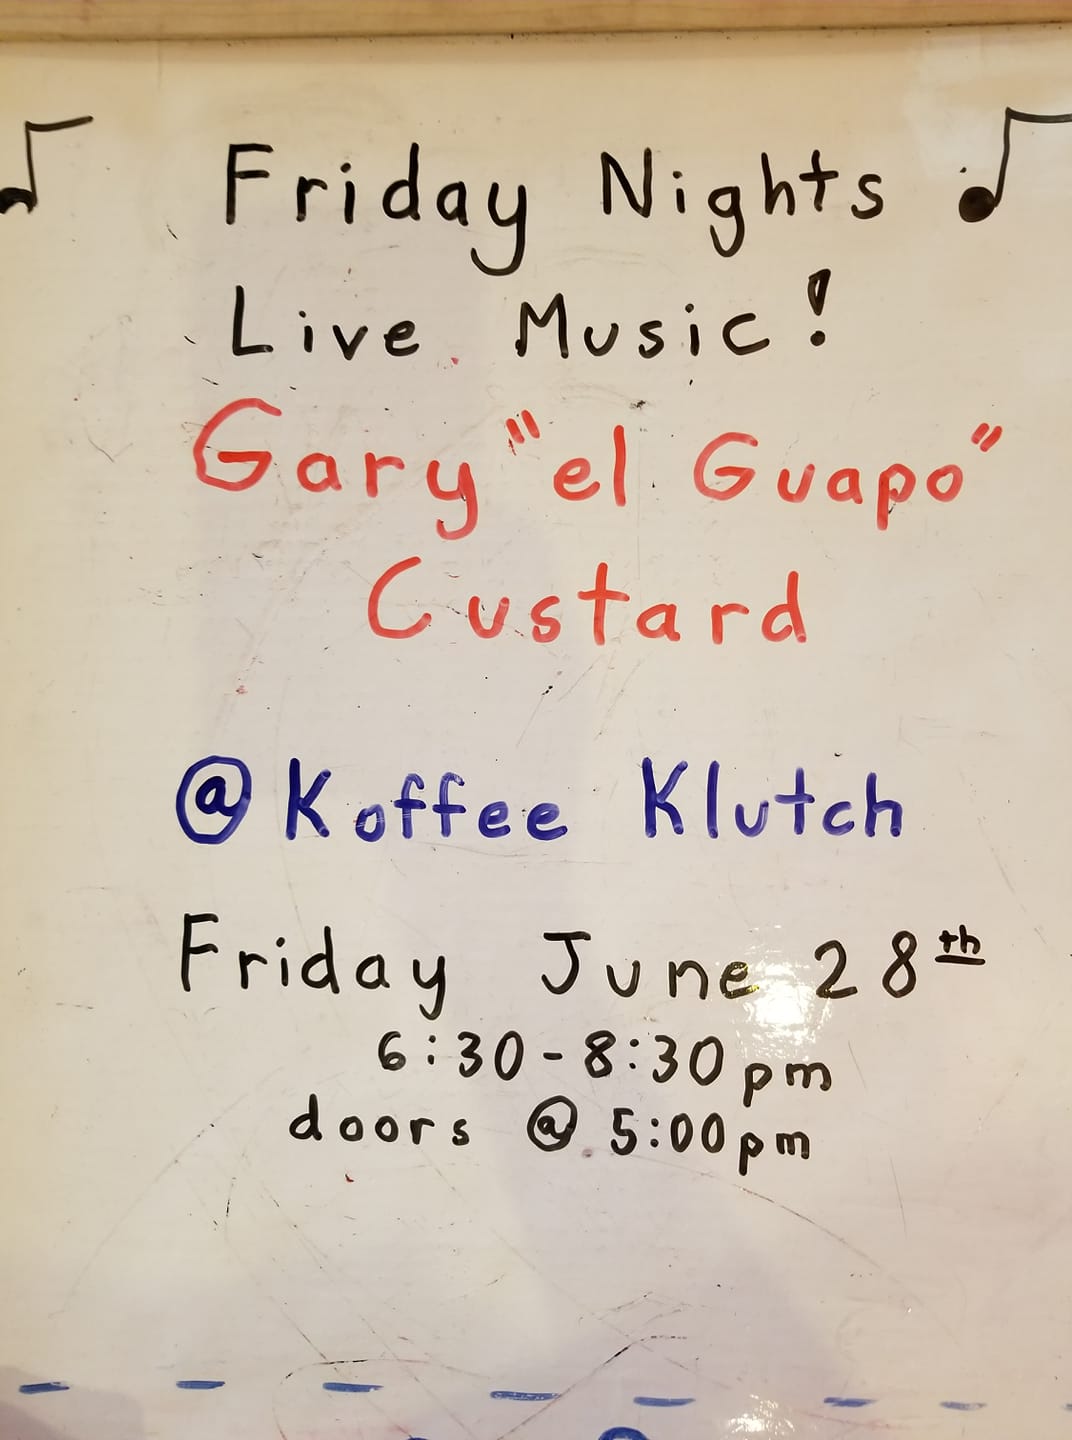 Friday Nights
Live Music!
Gary "el Guapo"
Custard
@ Koffee Klutch
Friday June 28th
6:30-8:30 pm
doors @ 5:00 pm